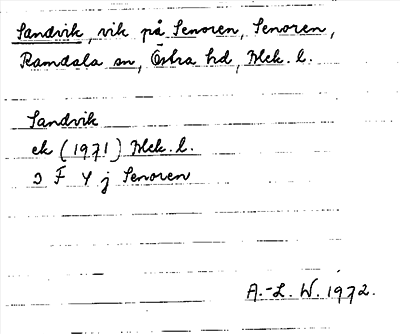 Sandvik, vik på Senoren, Senoren,
Ramdala sn, Östra hd, Blek. l.
Sandvik
ek (1971) Blek. l.
3 F 4 j Senoren
A.-L. W. 1972.